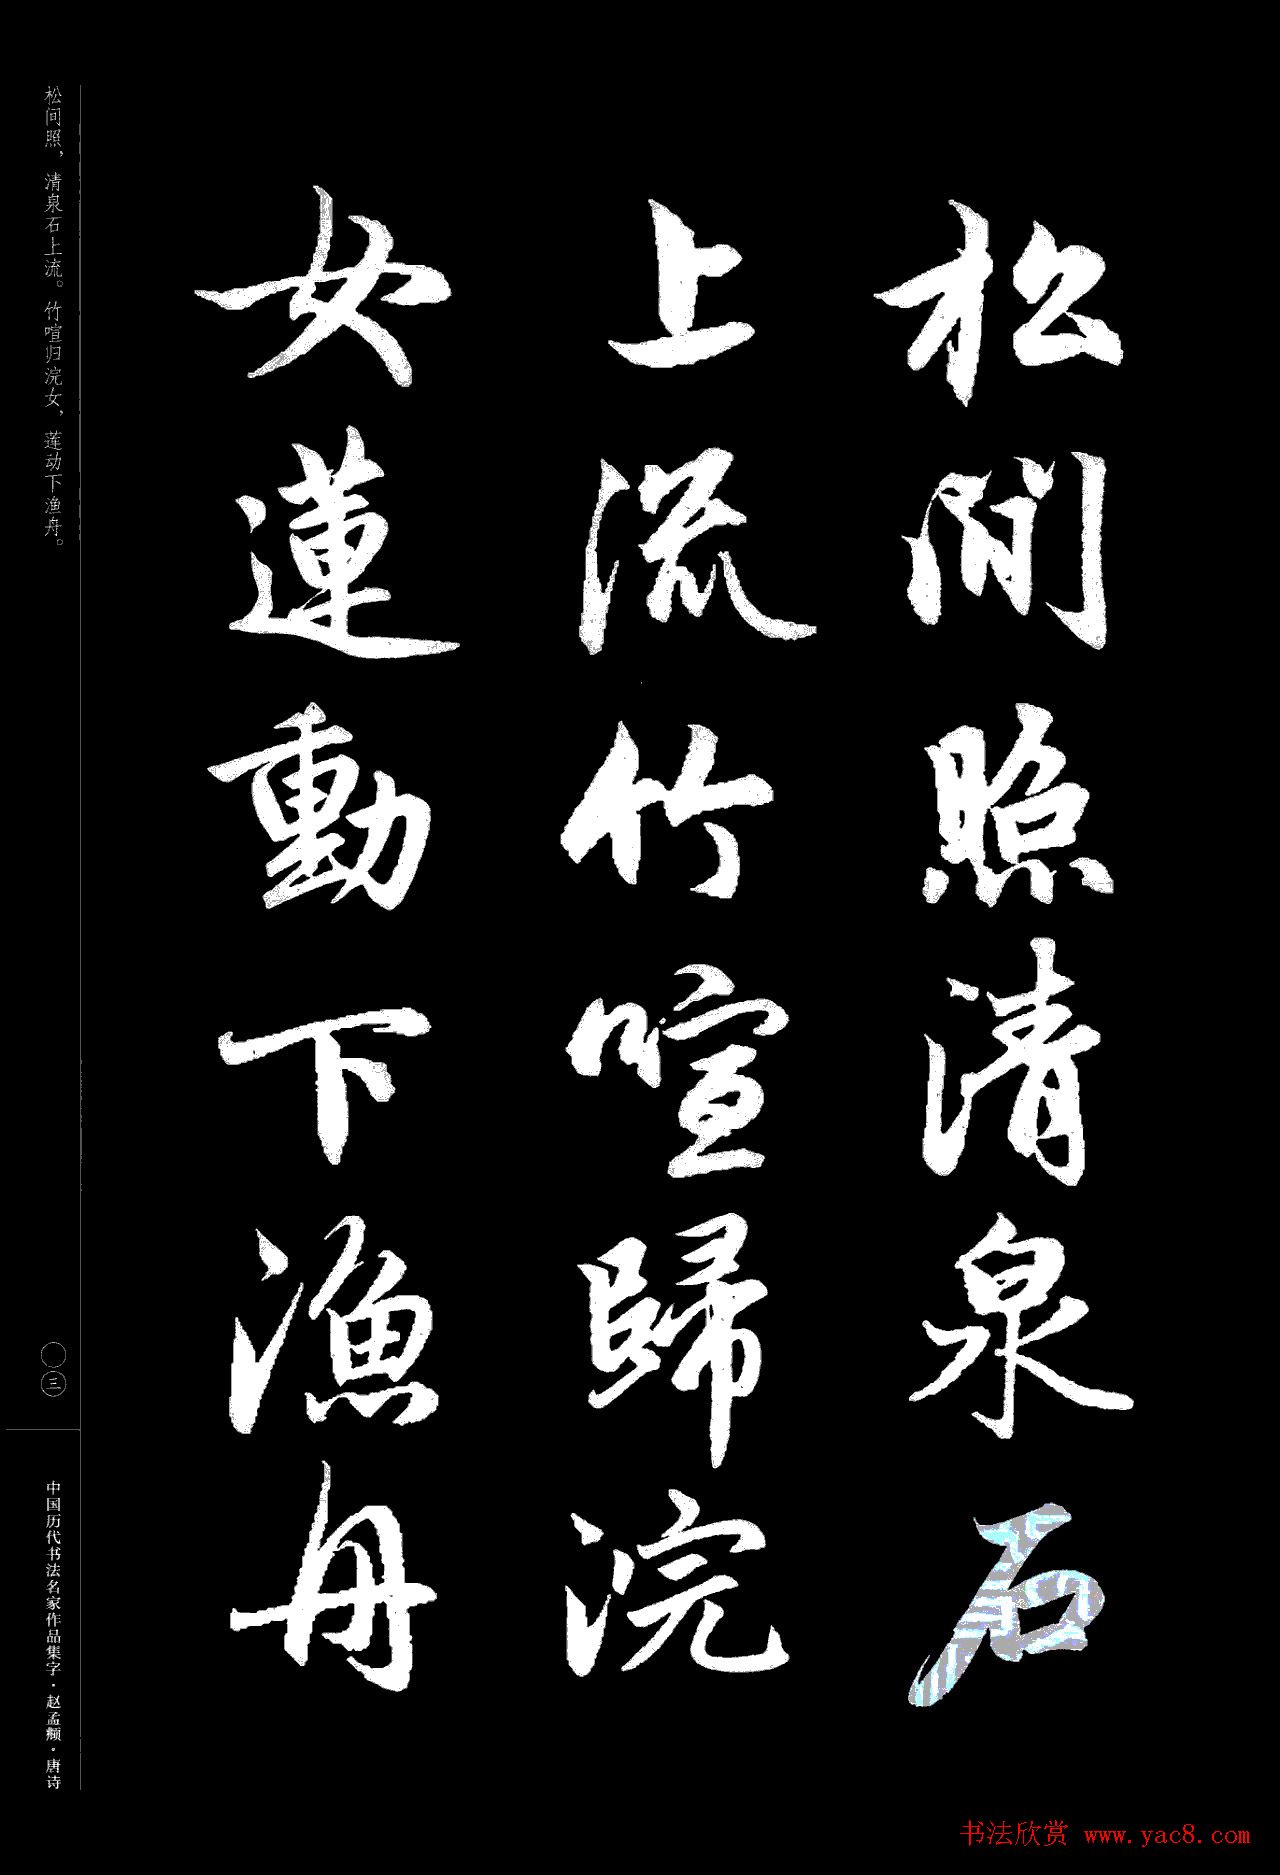 松間照清泉石
上流竹喧歸浣
女蓮動下漁舟
松间照，清泉石上流。竹喧归浣女，莲动下渔舟。
〇三
中国历代书法名家作品集字·赵孟頫·唐诗
书法欣赏 www.yac8.com